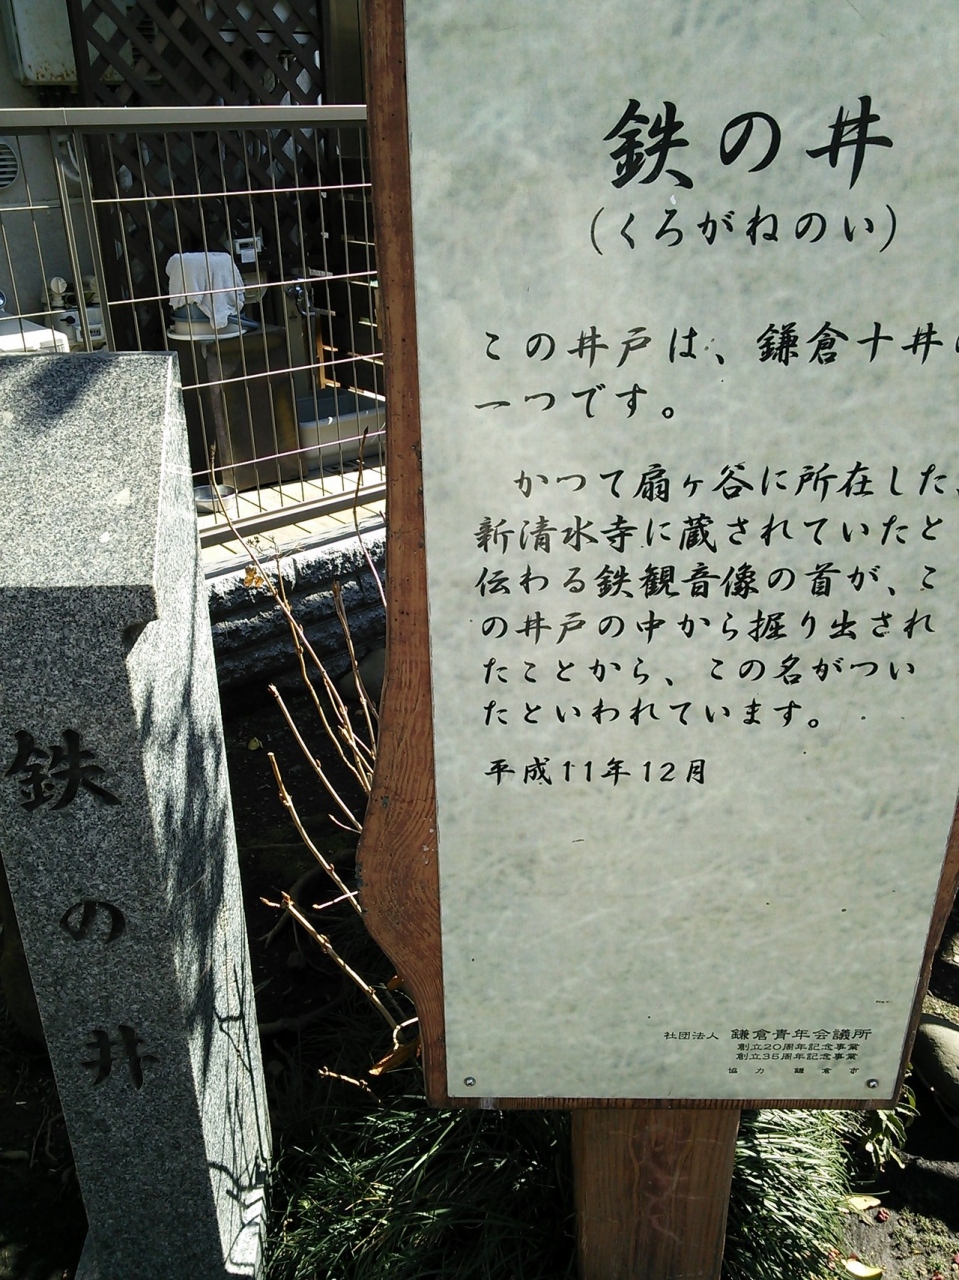 鉄の井
(くろがねのい)
この井戸は、鎌倉十井
一つです。
かつて扇ヶ谷に所在した
新清水寺に蔵されていたと
伝わる鉄観音像の首が、こ
の井戸の中から掘り出され
たことから、この名がつい
たといわれています。
平成11年12月
社団法人 鎌倉青年会議所
創立20周年記念事業
創立35周年記念事業
協力 鎌倉市
鉄の井